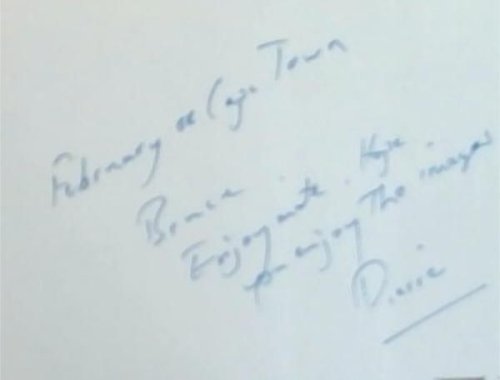 February Cape Town
Bruce.
Enjoy mate. Hope
enjoy The images